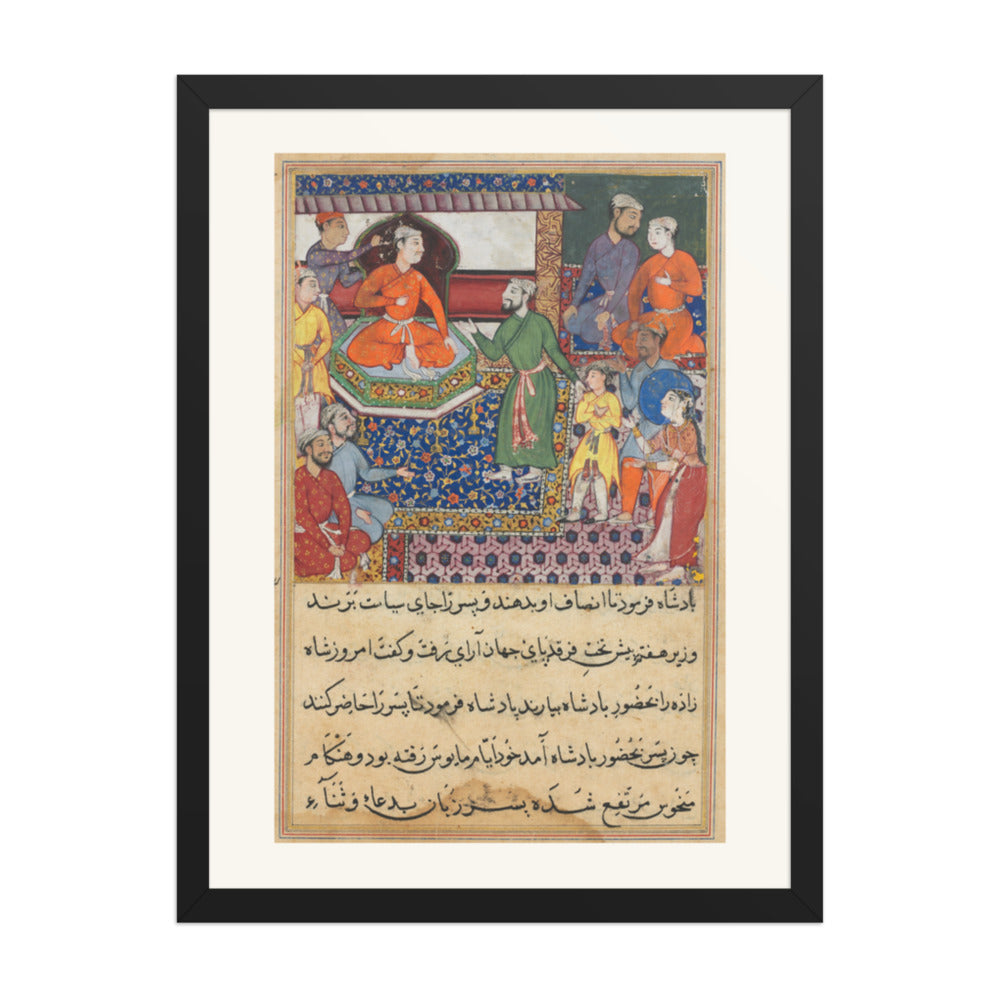 بادشاه فرمود تا انصاف او بدهند و پسر را جای سیاست برند
وزیر هفتم پیش تخت فرقدپای جهان آرای رفت و گفت امروز شاه
زاده را بحضور بادشاه بیارند بادشاه فرمود تا پسر را حاضر کنند
چون پسر بحضور بادشاه آمد خود ایام مایوس رفته بود و هنکام
منحوس مرتفع شده پسر زبان بدعاء و ثناء